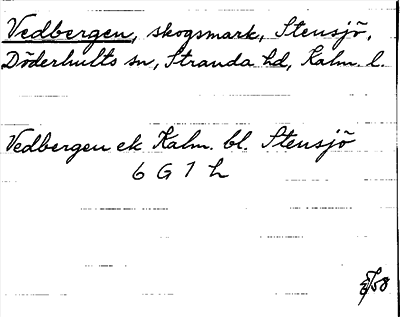 Vedbergen, skogsmark, Stensjö,
Döderhults sn, Stranda hd, Kalm. l.
Vedbergen ek Kalm. bl. Stensjö
6 G 1 h